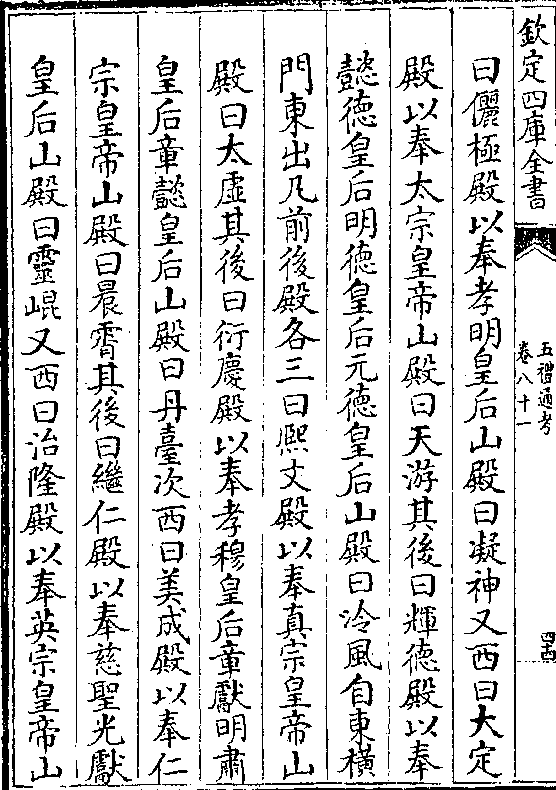 欽定四庫全書
五禮通考
卷八十一
四
曰儷極殿以奉孝明皇后山殿曰凝神又西曰大定
殿以奉太宗皇帝山殿曰天游其後曰輝德殿以奉
懿德皇后明德皇后元德皇后山殿曰泠風自東橫
門東出凡前後殿各三曰熈文殿以奉真宗皇帝山
殿曰太虛其後曰衍慶殿以奉孝穆皇后章獻明肅
皇后章懿皇后山殿曰丹臺次西曰美成殿以奉仁
宗皇帝山殿曰晨霄其後曰繼仁殿以奉慈聖光獻
皇后山殿曰靈崐又西曰治隆殿以奉英宗皇帝山